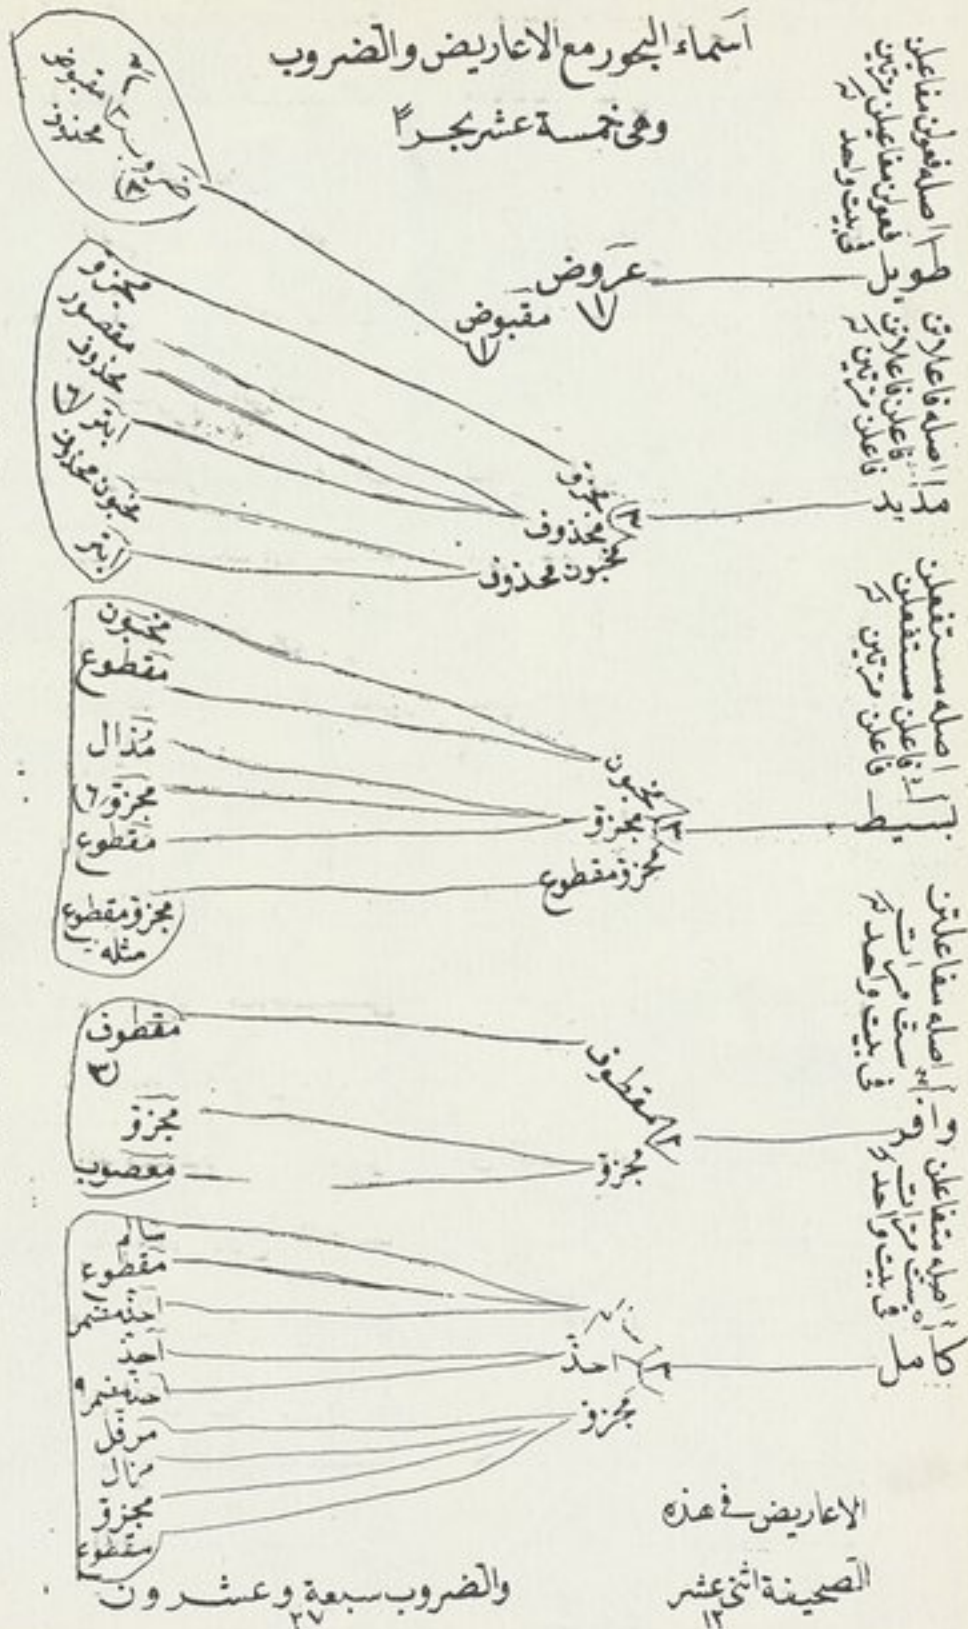 اسماء البحور مع الاعاريض والضروب
وهى خمسة عشر بحراً
طويل
اصله فعولن مفاعيلن
فعولن مفاعيلن مرتين
فى بيت واحد
عروض
١
مقبوض
١
ضروب
٣
سالم
مقبوض
محذوف
مديد
اصله فاعلاتن
فاعلن فاعلاتن
فاعلن مرتين
٣
مجزو
محذوف
مخبون محذوف
مجزو
مقصور
محذوف
ابتر ٦
مخبون محذوف
ابتر
بسيط
اصله مستفعلن
فاعلن مستفعلن
فاعلن مرتين
٣
مخبون
مجزو
مجزو مقطوع
مخبون
مقطوع
مذال
مجزو ٦
مقطوع
مجزو مقطوع
مثله
وافر
اصله مفاعلتن
ست مرات
فى بيت واحد
٢
مقطوف
مجزو
مقطوف
٣
مجزو
معصوب
كامل
اصله متفاعلن
ست مرات
فى بيت واحد
٣
سالم
احذ
مجزو
سالم
مقطوع
احذ مضمر
احذ
احذ مضمر ٩
مرفل
مذال
مجزو
مقطوع
الاعاريض فى هذه
الصحيفة اثنى عشر
١٢
والضروب سبعة وعشرون
٢٧